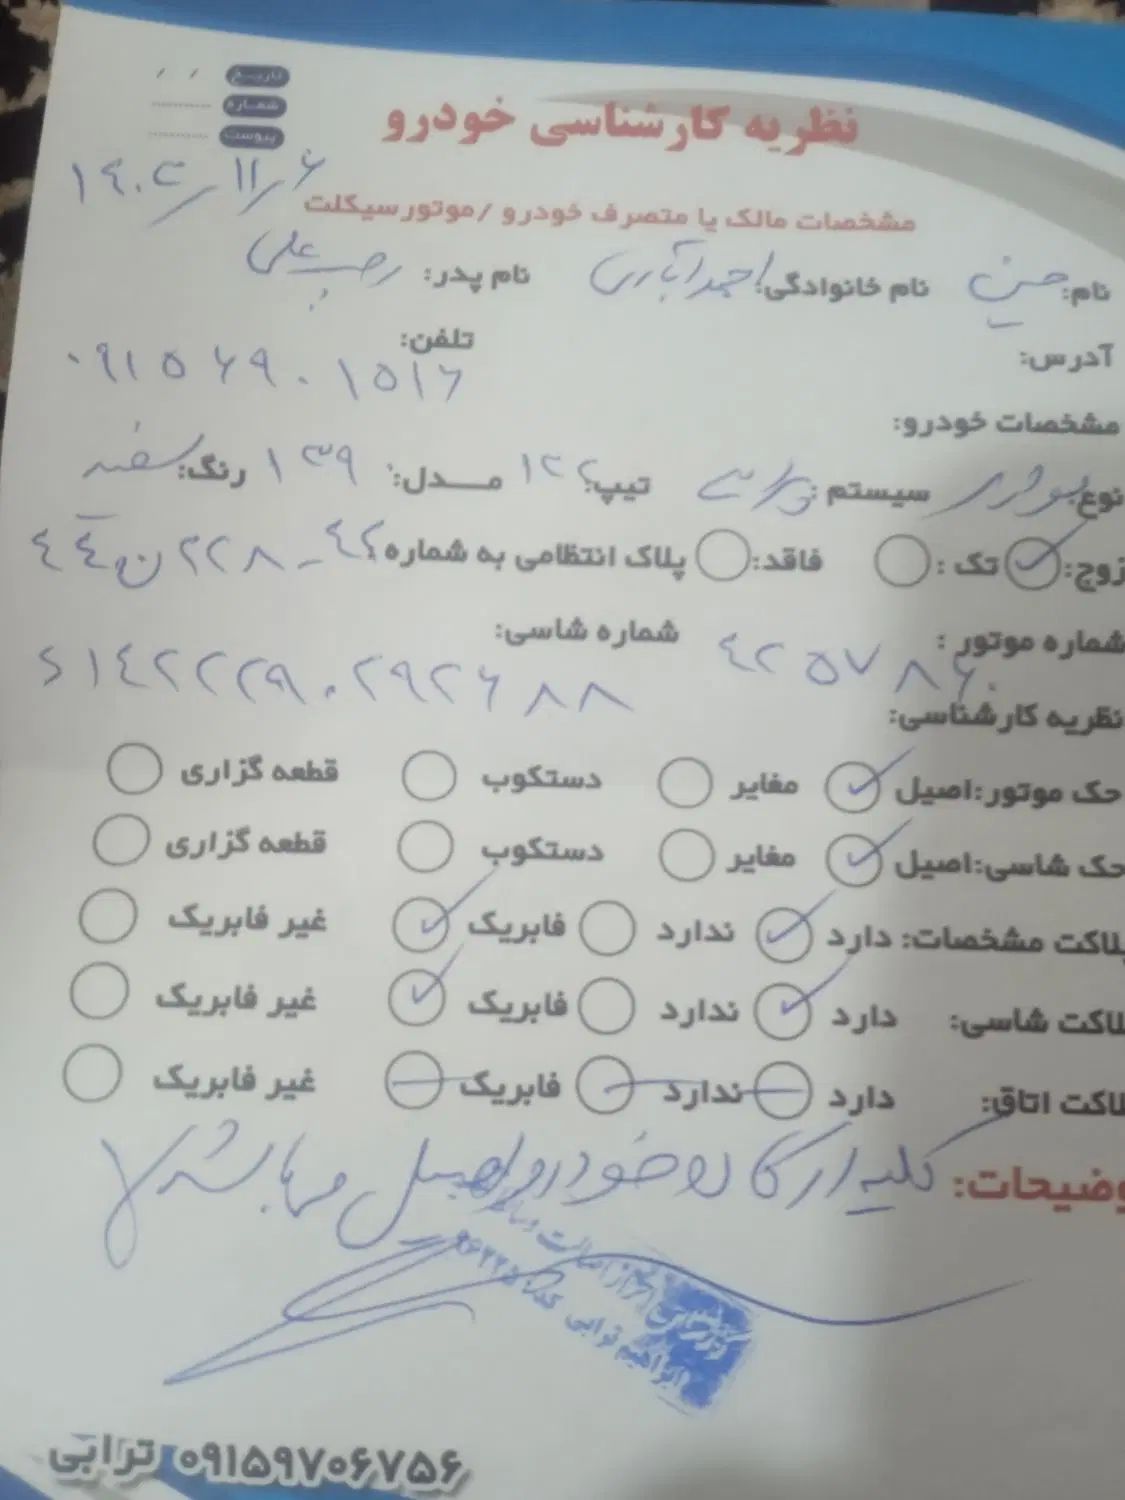 تاریخ / /
شماره
پیوست
نظریه کارشناسی خودرو
۱۴۰۳/۱۱/۶
مشخصات مالک یا متصرف خودرو /موتورسیکلت
نام: حسین نام خانوادگی: احمدآبادی نام پدر: رجبعلی
آدرس: تلفن:
۰۹۱۵۶۹۰۱۵۱۶
مشخصات خودرو:
نوع: سواری سیستم: پراید تیپ: ۱۳۲ مدل: ۱۳۹۰ رنگ: سفید
زوج: تک: فاقد: پلاک انتظامی به شماره:
شماره موتور: ۴۲۵۷۸۶۰ شماره شاسی:
S۱۴۲۲۲۹۰۲۹۲۶۸۸
نظریه کارشناسی:
حک موتور:اصیل مغایر دستکوب قطعه گزاری
حک شاسی:اصیل مغایر دستکوب قطعه گزاری
پلاکت مشخصات: دارد ندارد فابریک غیر فابریک
پلاکت شاسی: دارد ندارد فابریک غیر فابریک
پلاکت اتاق: دارد ندارد فابریک غیر فابریک
توضیحات: کلیه ارکان خودرو اصیل میباشد
ابراهیم ترابی
۰۹۱۵۹۷۰۶۷۵۶ ترابی